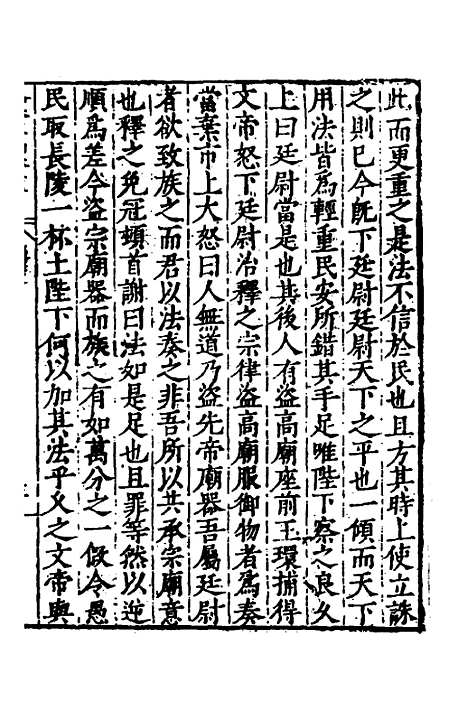 此而更重之是法不信於民也且方其時上使立誅
之則已今旣下廷尉廷尉天下之平也一傾而天下
用法皆爲輕重民安所錯其手足唯陛下察之良久
上曰廷尉當是也其後人有盜高廟座前玉環捕得
文帝怒下廷尉治釋之宗律盜高廟服御物者爲奏
當棄市上大怒曰人無道乃盜先帝廟器吾屬廷尉
者欲致族之而君以法奏之非吾所以共承宗廟意
也釋之免冠頓首謝曰法如是足也且罪等然以逆
順爲差今盜宗廟器而族之有如萬分之一假令愚
民取長陵一杯土陛下何以加其法乎乆之文帝與